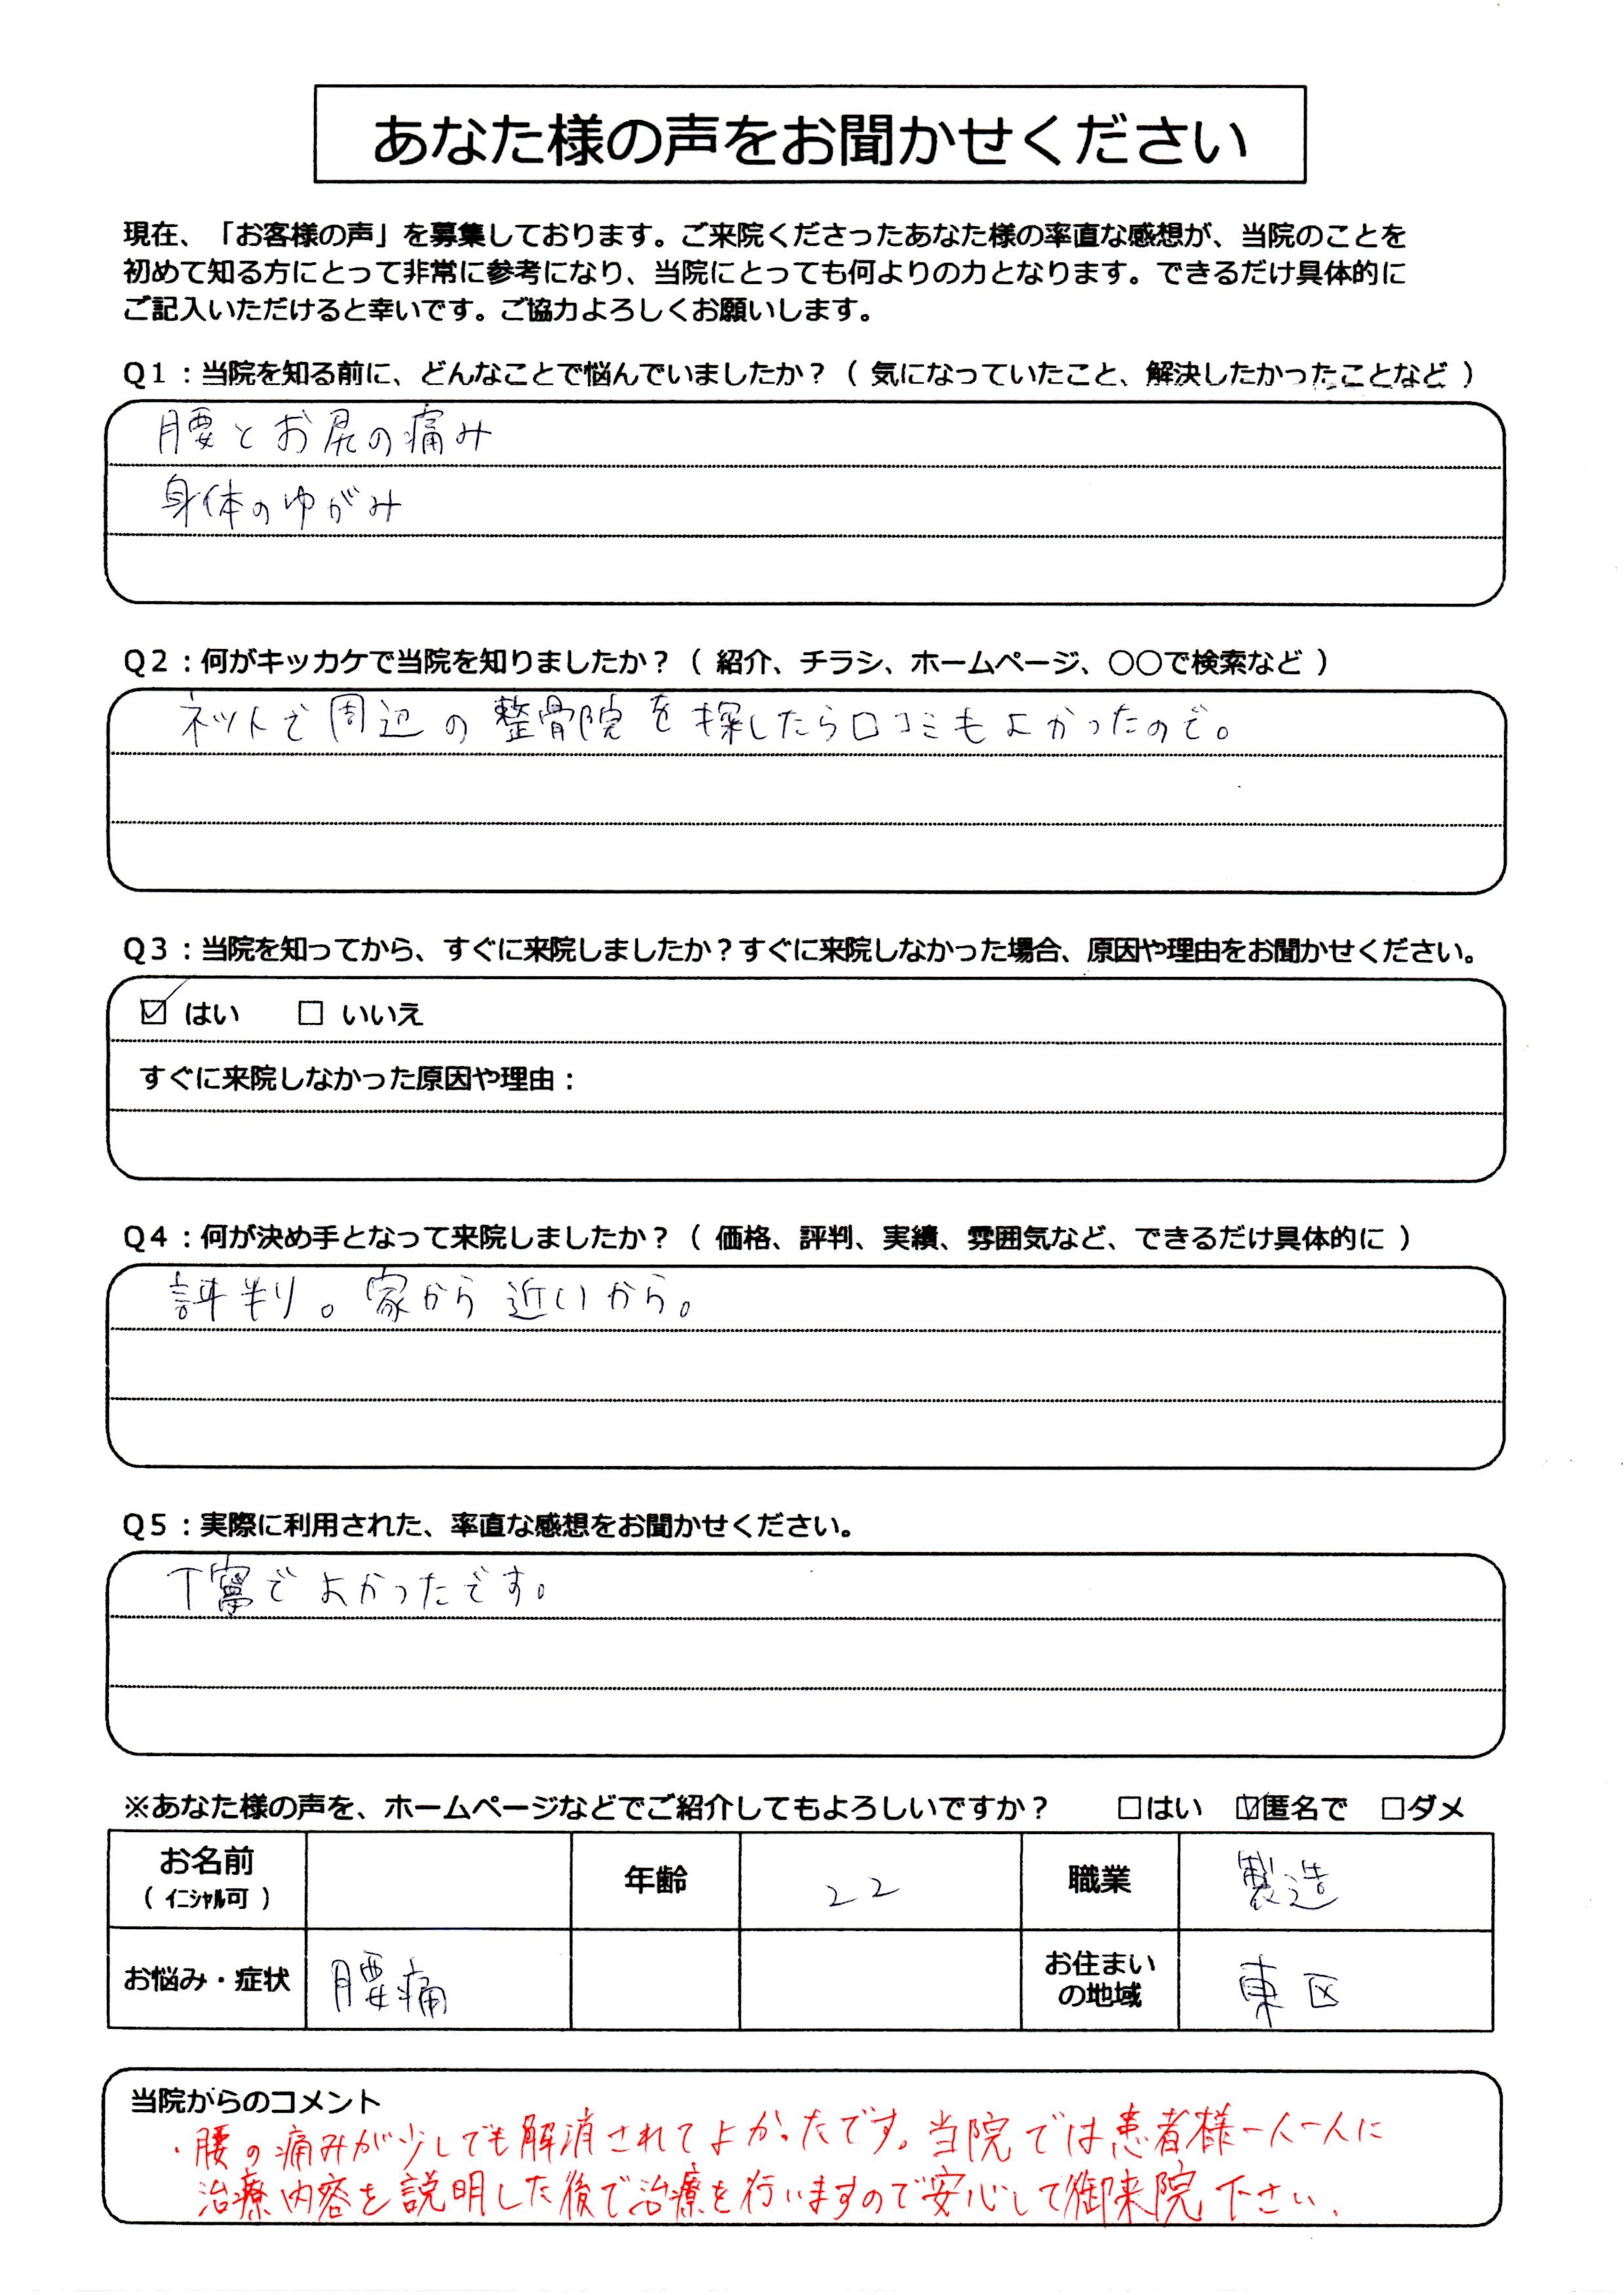 あなた様の声をお聞かせください
現在、「お客様の声」を募集しております。ご来院くださったあなた様の率直な感想が、当院のことを
初めて知る方にとって非常に参考になり、当院にとっても何よりの力となります。できるだけ具体的に
ご記入いただけると幸いです。ご協力よろしくお願いします。
Q1：当院を知る前に、どんなことで悩んでいましたか？（ 気になっていたこと、解決したかったことなど ）
腰とお尻の痛み
身体のゆがみ
Q2：何がキッカケで当院を知りましたか？（ 紹介、チラシ、ホームページ、○○で検索など ）
ネットで周辺の整骨院を探したら口コミもよかったので。
Q3：当院を知ってから、すぐに来院しましたか？すぐに来院しなかった場合、原因や理由をお聞かせください。
☑ はい □ いいえ
すぐに来院しなかった原因や理由：
Q4：何が決め手となって来院しましたか？（ 価格、評判、実績、雰囲気など、できるだけ具体的に ）
評判。家から近いから。
Q5：実際に利用された、率直な感想をお聞かせください。
丁寧でよかったです。
※あなた様の声を、ホームページなどでご紹介してもよろしいですか？ □はい ☑匿名で □ダメ
お名前
（ イニシャル可 ）
年齢 22 職業 製造
お悩み・症状 腰痛
お住まい
の地域
東区
当院からのコメント
・腰の痛みが少しでも解消されてよかったです。当院では患者様一人一人に
治療内容を説明した後で治療を行いますので安心して御来院下さい。